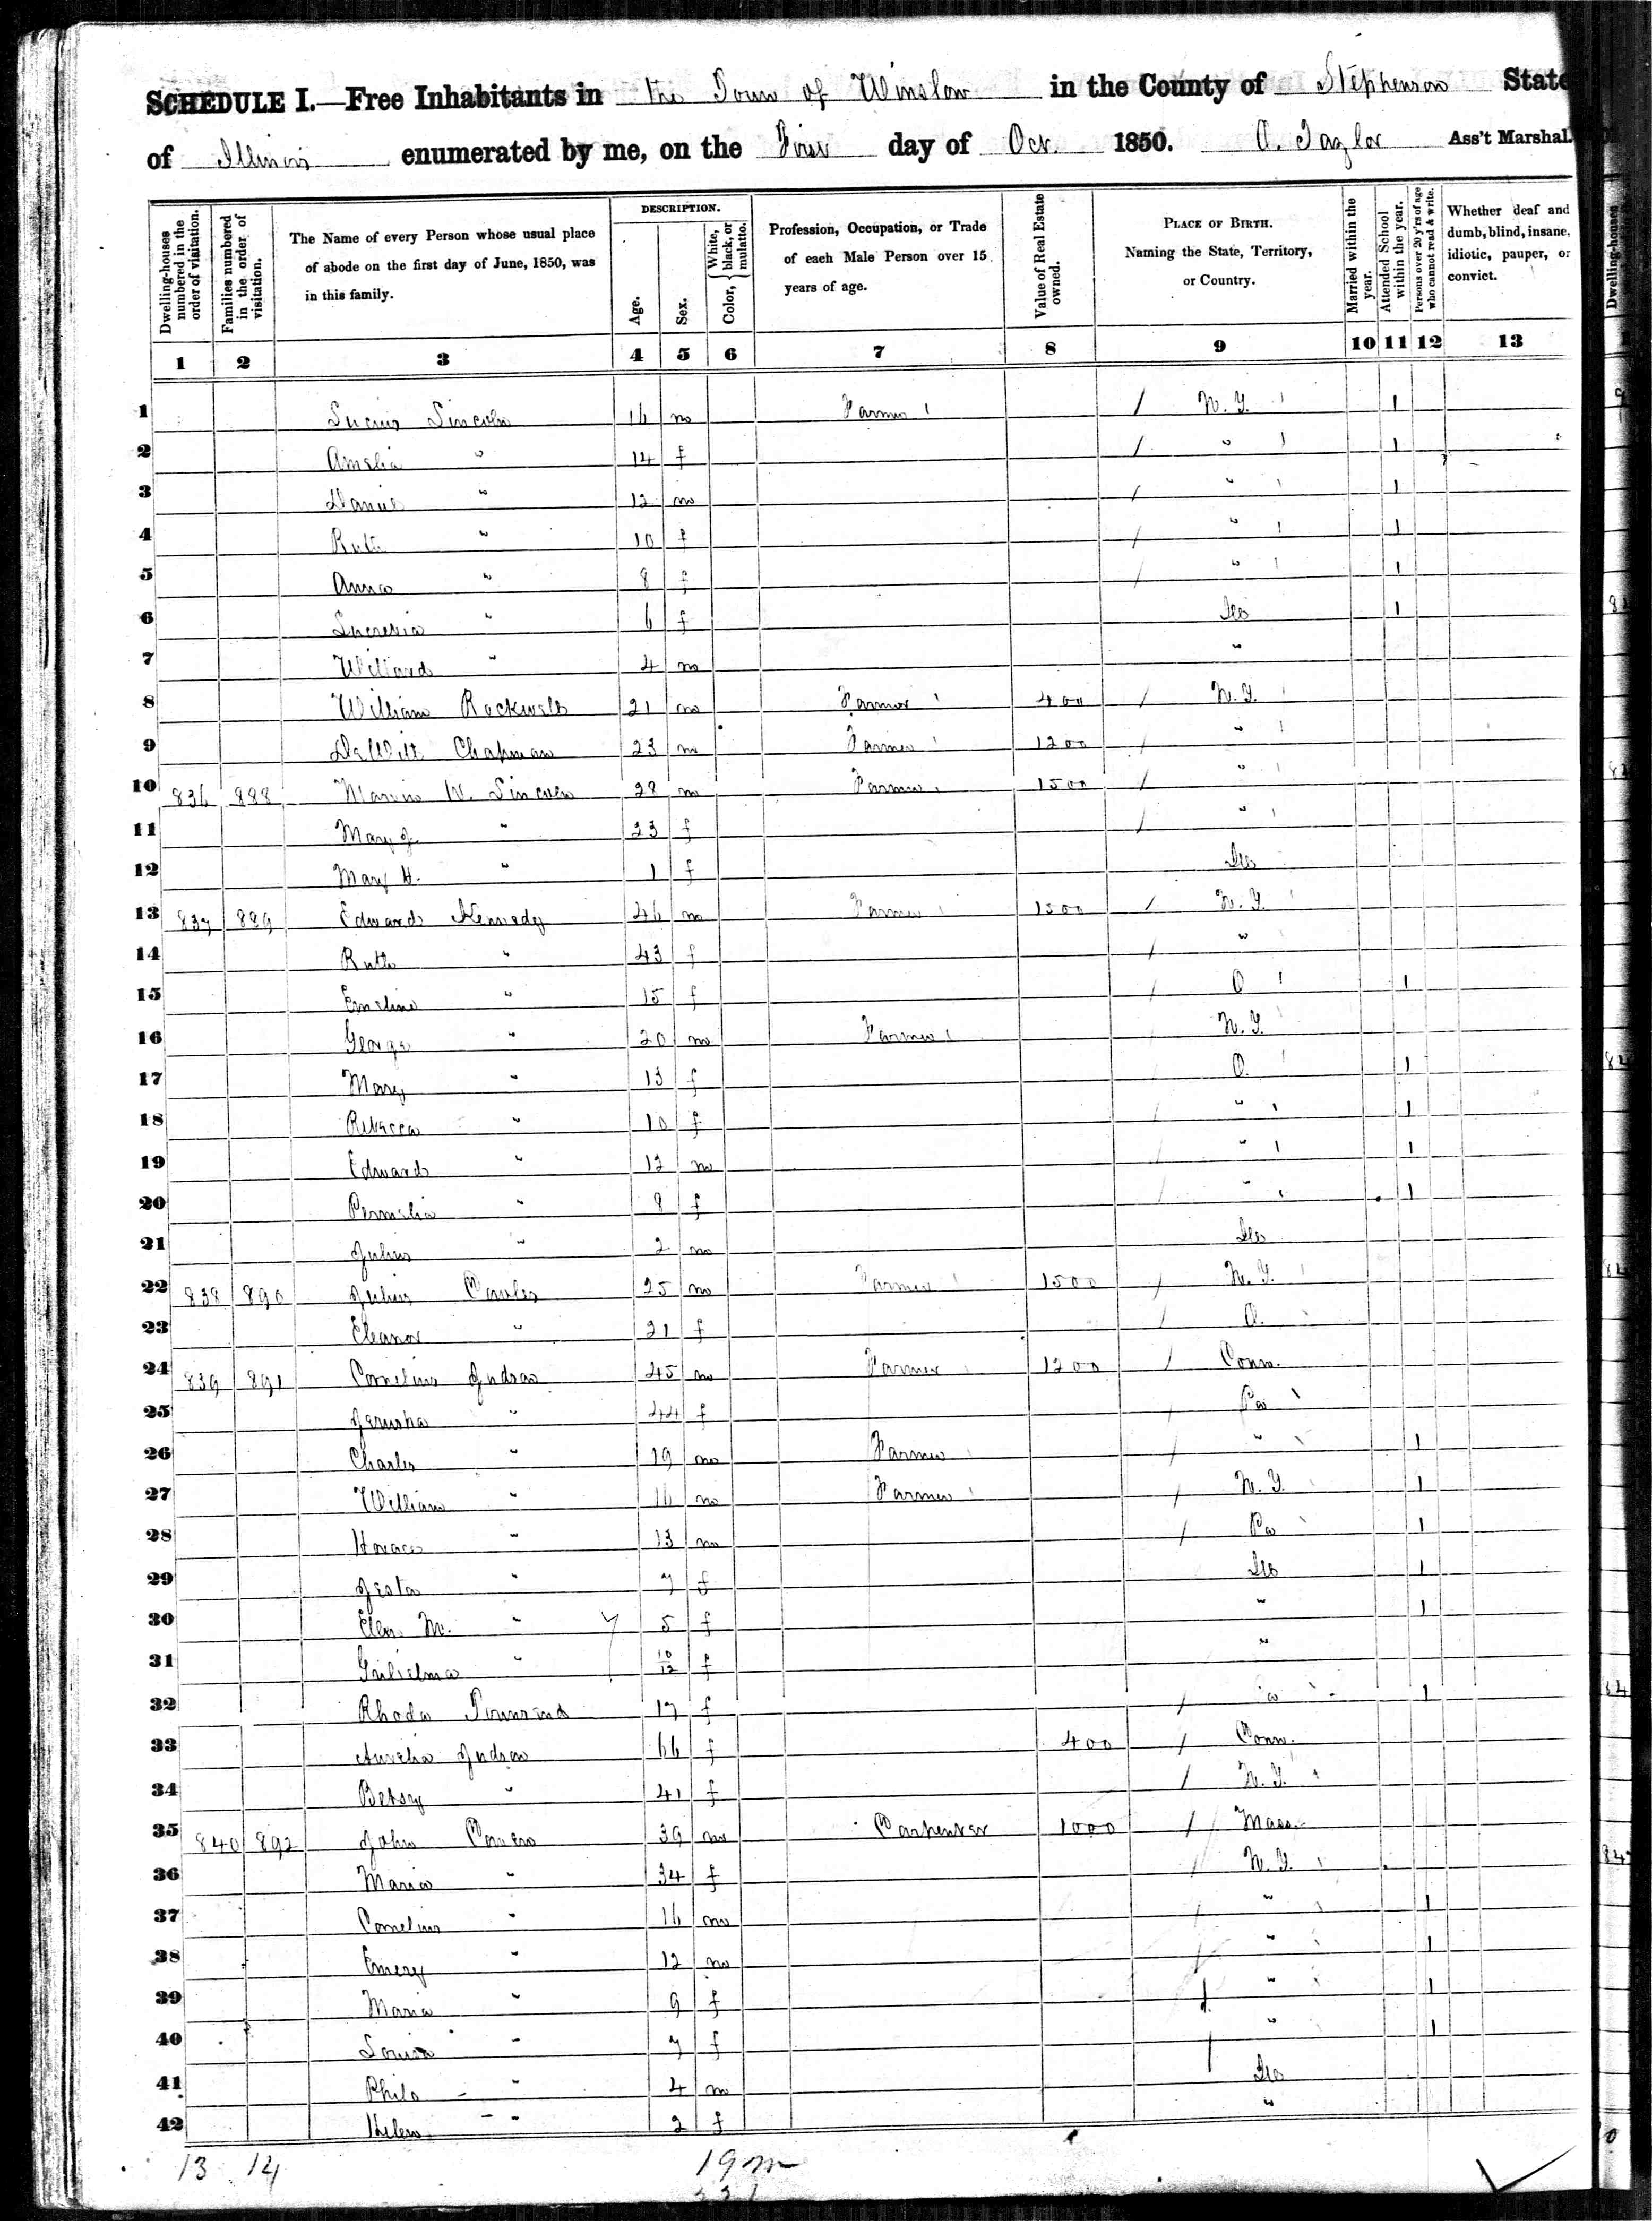 SCHEDULE I.—Free Inhabitants in the Town of Winslow in the County of Stephenson State
of Illinois enumerated by me, on the First day of Oct. 1850. O. Taylor Ass't Marshal.
Dwelling-houses numbered in the order of visitation.
Families numbered in the order of visitation.
The Name of every Person whose usual place of abode on the first day of June, 1850, was in this family.
DESCRIPTION.
Age.
Sex.
Color, { White, black, or mulatto.
Profession, Occupation, or Trade of each Male Person over 15 years of age.
Value of Real Estate owned.
PLACE OF BIRTH. Naming the State, Territory, or Country.
Married within the year.
Attended School within the year.
Persons over 20 y'rs of age who cannot read & write.
Whether deaf and dumb, blind, insane, idiotic, pauper, or convict.
1 2 3 4 5 6 7 8 9 10 11 12 13
1 Lucius Lincoln 16 m Farmer / N.Y. 1
2 Amelia " 14 f / " 1
3 Daniel " 12 m / " 1
4 Ruth " 10 f / " 1
5 Anna " 8 f / " 1
6 Lucretia " 6 f Ills 1
7 Willard " 4 m "
8 William Rockwell 21 m Farmer 400 / N.Y.
9 DeWitt Chapman 23 m Farmer 1200 / "
10 836 888 W. Lincoln 28 m Farmer 1500 / "
11 Mary J. " 23 f / "
12 Mary H. " 1 f Ills
13 837 889 Edward Kennedy 46 m Farmer 1500 / N.Y.
14 Ruth " 43 f / "
15 Emeline " 15 f / O 1
16 George " 20 m Farmer N.Y.
17 Mary " 13 f / O. 1
18 Rebecca " 10 f / " 1
19 Edward " 12 m / " 1
20 Permelia " 8 f / " 1
21 Julius " 2 m Ills
22 838 890 Julius Cowles 25 m Farmer 1500 / N.Y.
23 Eleanor " 21 f / O.
24 839 891 Cornelius Judson 45 m Farmer 1200 / Conn.
25 Jerusha " 44 f / Pa
26 Charles " 19 m Farmer / " 1
27 William " 16 m Farmer / N.Y. 1
28 Horace " 13 m / Pa 1
29 " 7 f Ills 1
30 Ellen M. " 5 f " 1
31 Gulielma " 10/12 f "
32 Rhoda Townsend 17 f / 1
33 Aurelia Judson 66 f 400 / Conn.
34 Betsey " 41 f / N.Y.
35 840 892 John 39 m Carpenter 1000 / Mass.
36 Maria " 34 f / N.Y.
37 Cornelius " 16 m / " 1
38 Emery " 12 m / " 1
39 Maria " 9 f / " 1
40 Louisa " 7 f / " 1
41 Philo " 4 m Ills
42 Helen " 2 f "
13 14 19 m